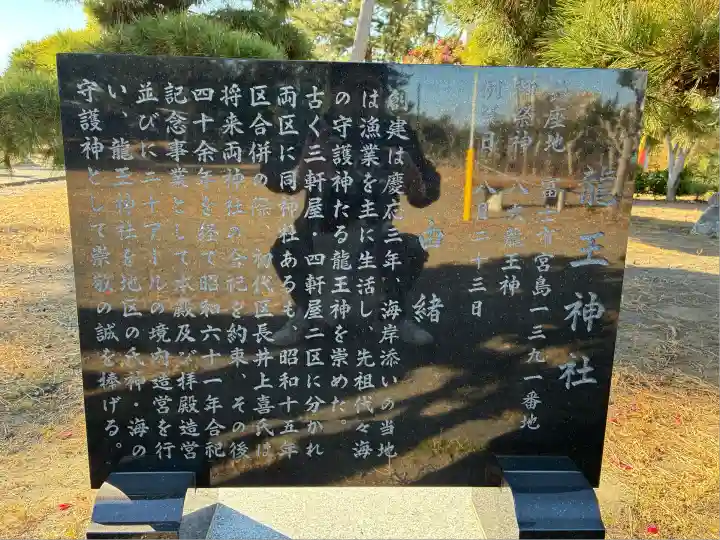 龍王神社
鎮座地 富士市宮島一三九一番地
御祭神 八大龍王神
例祭日 八月二十三日
由緒
創建は慶応三年、海岸添いの当地
は漁業を主に生活し、先祖代々海
の守護神たる龍王神を崇めた。
古く三軒屋・四軒屋二区に分かれ
両区に同神社あるも、昭和十五年
区合併の際、初代区長井上喜氏は
将来両神社の合祀を約束、その後
四十余年を経て昭和六十一年合祀
記念事業として本殿及び拝殿造営
並びに二十アールの境内造営を行
い、龍王神社を地区の氏神・海の
守護神として崇敬の誠を捧げる。